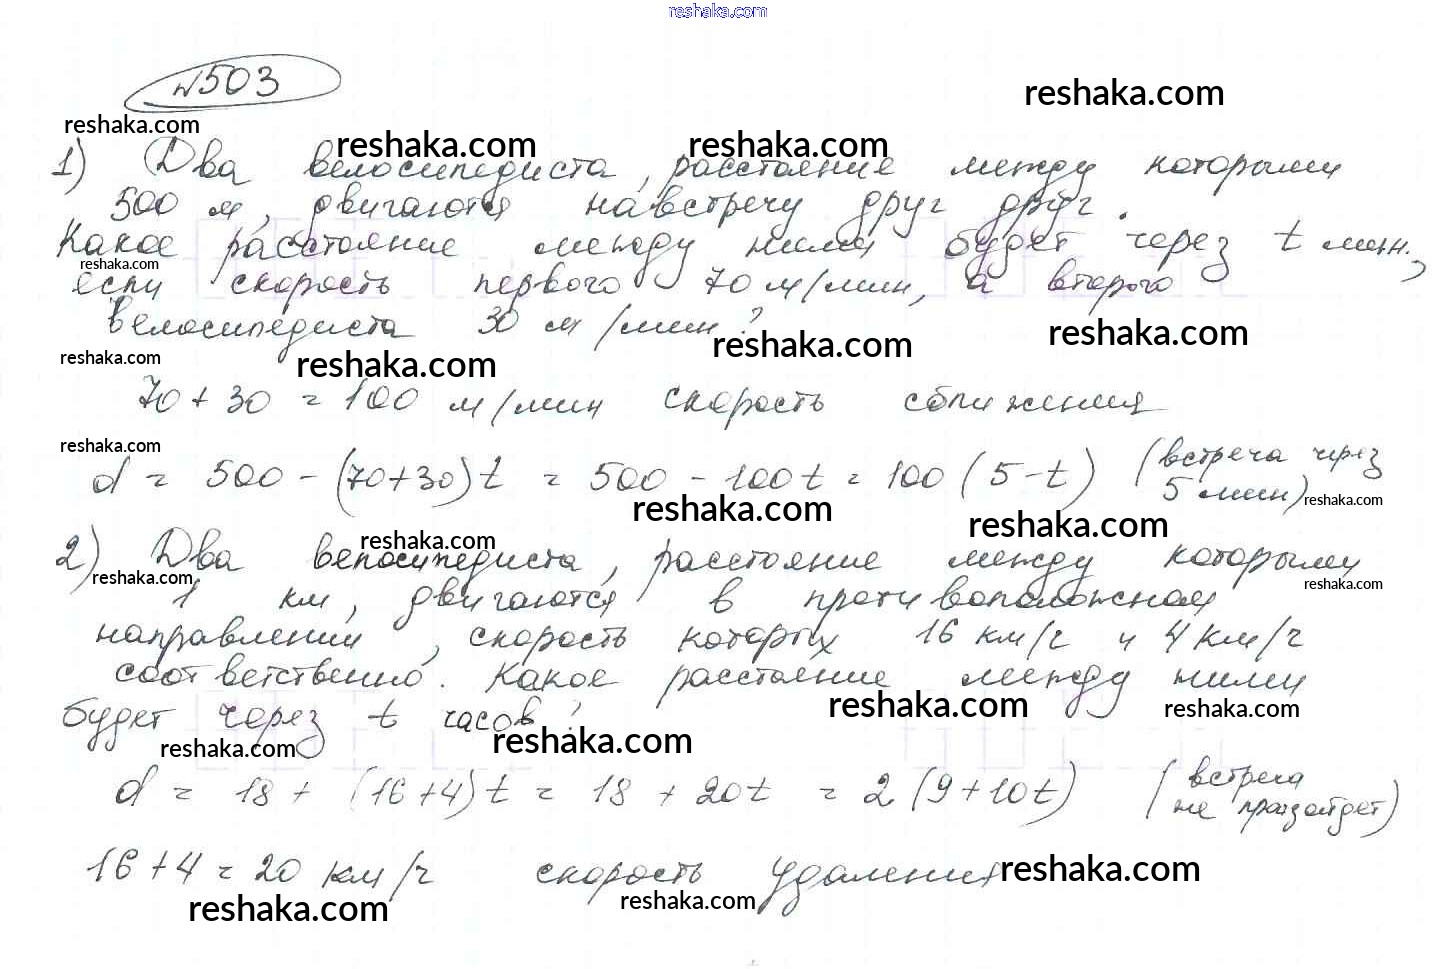 reshaka.com
№503
reshaka.com
reshaka.com
reshaka.com reshaka.com
1) Два велосипедиста, расстояние между которыми
500 м, двигаются навстречу друг друг.
Какое расстояние между ними будет через t мин.,
reshaka.com
если скорость первого 70 м/мин, а второго
велосипедиста 30 м/мин?
reshaka.com reshaka.com
reshaka.com reshaka.com
70 + 30 = 100 м/мин скорость сближения
reshaka.com
d = 500 - (70+30)t = 500 - 100t = 100 (5-t) (встреча через
5 мин)
reshaka.com
reshaka.com reshaka.com
reshaka.com
2) Два велосипедиста, расстояние между которыми
reshaka.com reshaka.com
1 км, двигаются в противоположном
направлении, скорость которых 16 км/ч и 4 км/ч
соответственно. Какое расстояние между ними
reshaka.com reshaka.com
будет через t часов?
reshaka.com reshaka.com
d = 18 + (16+4)t = 18 + 20t = 2 (9+10t) (встреча
не произойдет)
16 + 4 = 20 км/ч скорость удаления
reshaka.com
reshaka.com reshaka.com